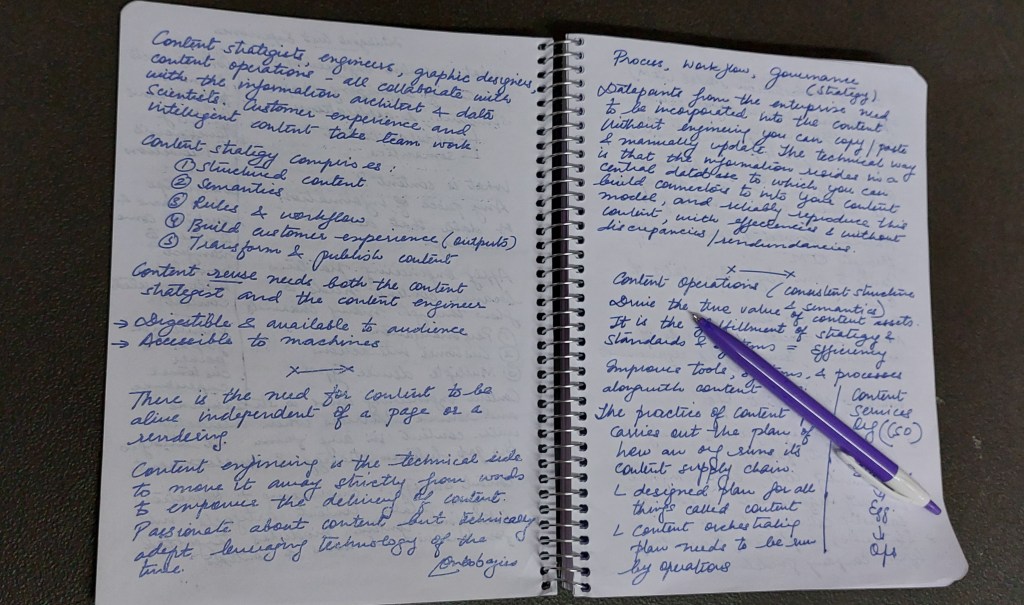 Content strategists, engineers, graphic designers,
content operations - all collaborate with
with the information architect & data
scientists. Customer experience and
intelligent content take team work.
Content strategy comprises:
① Structured content
② Semantics
③ Rules & workflow
④ Build customer experience (outputs)
⑤ Transform & publish content
Content reuse needs both the content
strategist and the content engineer
→ Digestible & available to audience
→ Accessible to machines
x—→x
There is the need for content to be
alive independent of a page or a
rendering.
Content engineering is the technical side
to move it away strictly from words
to empower the delivery of content.
Passionate about content but technically
adept, leveraging technology of the
time.
Ontologies
Process, workflow, governance
(strategy)
Datapoints from the enterprise need
to be incorporated into the content
Without engineering you can copy/paste
& manually update. The technical way
is that the information resides in a
central database to which you can
build connectors to into your content
model, and reliably reproduce this
content, with efficiencies & without
discrepancies/redundancies.
x—→x
Content Operations (consistent structure
& semantics)
Drive the true value of content assets.
It is the fulfillment of strategy &
standards & = Efficiency
Improve tools, & processes
alongwith content
The practice of content
carries out the plan of
how an org runs its
content supply chain.
L designed plan for all
things called content
L Content orchestrating
plan needs to be run
by operations
Content
Services
Org (CSO)
↓
Egg
↓
Ops